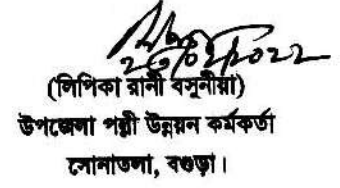 (লিপিকা রানী বসুনীয়া)
উপজেলা পল্লী উন্নয়ন কর্মকর্তা
সোনাতলা, বগুড়া।